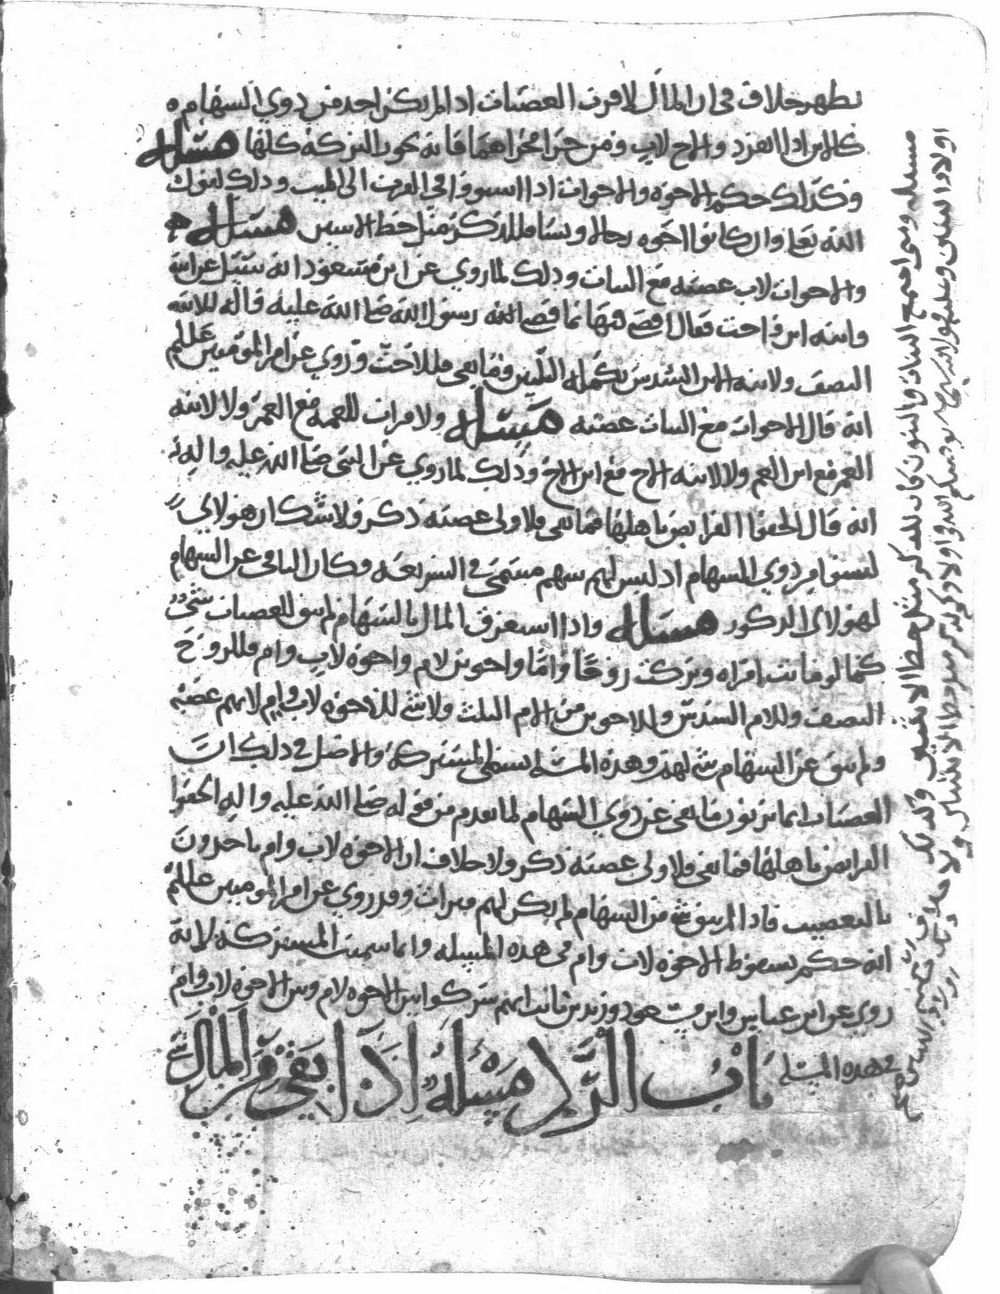 يظهر خلاف في ان المال لاقرب العصبات اذا لم يكن احد من ذوي السهام
كالابن اذا انفرد والاخ لاب ومن جرا مجراهما فانه يحوز التركة كلها مسئلة
وكذلك حكم الاخوة والاخوات اذا استووا في القرب الى الميت وذلك لقول
الله تعالى وان كانوا اخوة رجالا ونساء فللذكر مثل حظ الانثيين مسئلة
والاخوات لاب عصبة مع البنات وذلك لما روي عن ابن مسعود انه سئل عن ابنة
وابنة ابن واخت فقال اقضي فيها بما قضى الله رسول الله صلى الله عليه قال للابنة
النصف ولابنة الابن السدس تكملة الثلثين وما بقي فللاخت وروي عن امير المؤمنين عليلم
انه قال الاخوات مع البنات عصبة مسئلة ولا ميراث للعمة مع العم ولا لابنة
العم مع ابن العم ولا لابنة الاخ مع ابن الاخ وذلك لما روي عن النبي صلى الله عليه واله
انه قال الحقوا الفرايض باهلها فما بقي فلاولى عصبة ذكر ولا شك ان هولاي
ليسوا من ذوي السهام اذ ليس لهم سهم مسمى في الشريعة وكان الباقي عن السهام
لهولاي الذكور مسئلة واذا استغرق المال بالسهام لم يبق للعصبات شي
كما لو ماتت امراة وتركت زوجا واما واخوين لام واخوة لاب وام فللزوج
النصف وللام السدس وللاخوين من الام الثلث ولا شي للاخوة لاب وام لانهم عصبة
ولم يبق عن السهام شي لهم وهذه المسئلة تسمى المشتركة والاصل في ذلك ان
العصبات انما يرثون ما بقي عن ذوي السهام لما تقدم من قوله صلى الله عليه واله الحقوا
الفرايض باهلها فما بقي فلاولى عصبة ذكر ولا خلاف ان الاخوة لاب وام ياخذون
بالتعصيب فاذا لم يبق شي من السهام لم يكن لهم ميراث وقد روي عن امير المؤمنين عليلم
انه حكم بسقوط الاخوة لاب وام في هذه المسئلة وانما سميت المشتركة لانه
روي عن ابن عباس وابن مسعود وزيد بن ثابت انهم شركوا بين الاخوة لام وبين الاخوة لاب وام
في هذه المسئلة باب الرد مسئلة اذا بقي من المال شي
مسئلة ومتى اجتمع البنات والبنون كان للذكر مثل حظ الانثيين